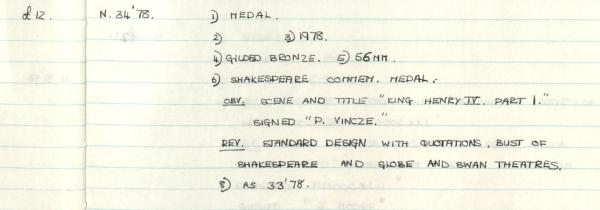 £12. N. 34'78. 1) MEDAL.
2) 3) 1978.
4) GILDED BRONZE. 5) 56MM.
6) SHAKESPEARE COMMEM. MEDAL.
OBV. SCENE AND TITLE "KING HENRY IV. PART I."
SIGNED "P. VINCZE."
REV. STANDARD DESIGN WITH QUOTATIONS, BUST OF
SHAKESPEARE AND GLOBE AND SWAN THEATRES.
8) AS 33'78.